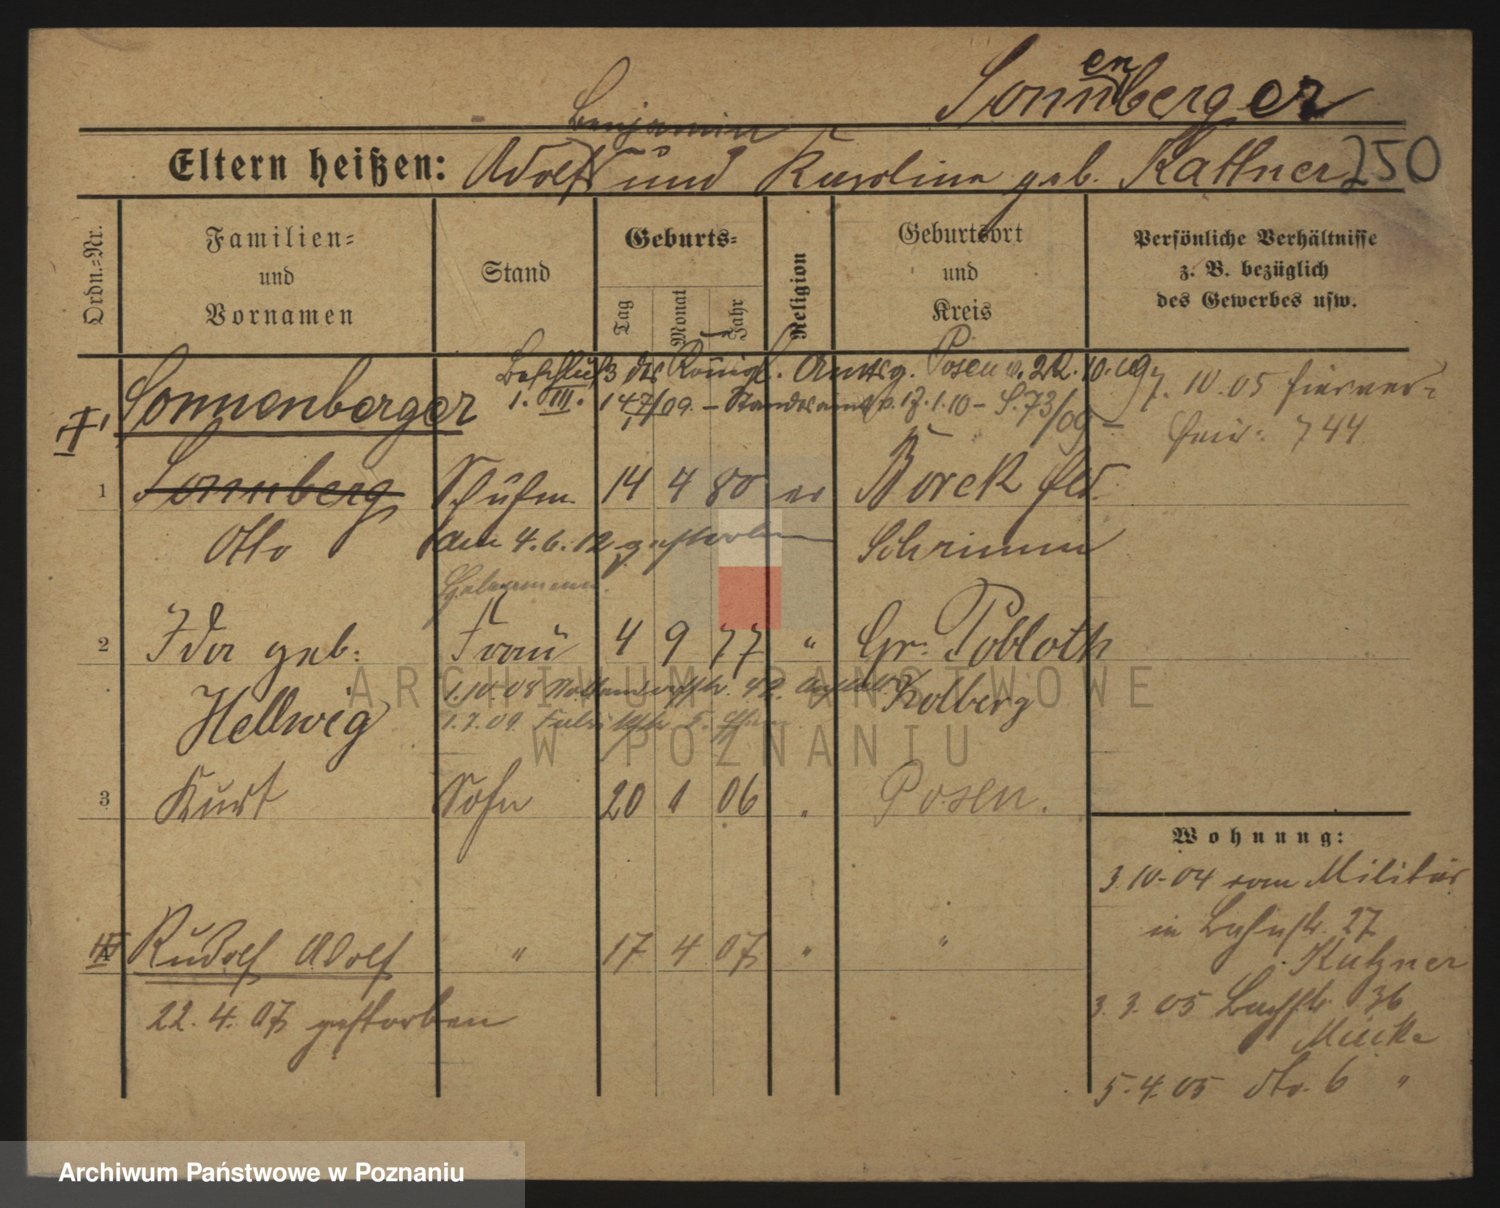 Sonnenberger
Benjamin
Eltern heißen: Adolf und Karoline geb. Kattner 250
Ordn.-Nr.
Familien-
und
Vornamen
Stand
Geburts-
Tag
Monat
Jahr
Religion
Geburtsort
und
Kreis
Persönliche Verhältnisse
z. B. bezüglich
des Gewerbes usw.
Beschluß des Königl. Amtsg. Posen v. 22.10.09
1. III. 147/09. – Standesamt v. 17.1.10 – S. 73/09 –
7.10.05 hierver-
heir: 744
Sonnenberger
1 Sonnberg Schuhm. 14 4 80 ev Borek
Otto am 4.6.12 gestorben Schrimm
2 Ida geb: Frau 4 9 77 " Gr. Pobloth
Hellwig Kolberg
1.10.08
1.7.09
3 Kurt Sohn 20 1 06 " Posen.
Wohnung:
3.10.04 vom Militär
in 27
Kutzner
4 Rudolf Adolf " 17 4 07 " "
22.4.07 gestorben
3.3.05 36
5.4.05 dto. 6 "
ARCHIWUM PAŃSTWOWE
W POZNANIU
Archiwum Państwowe w Poznaniu